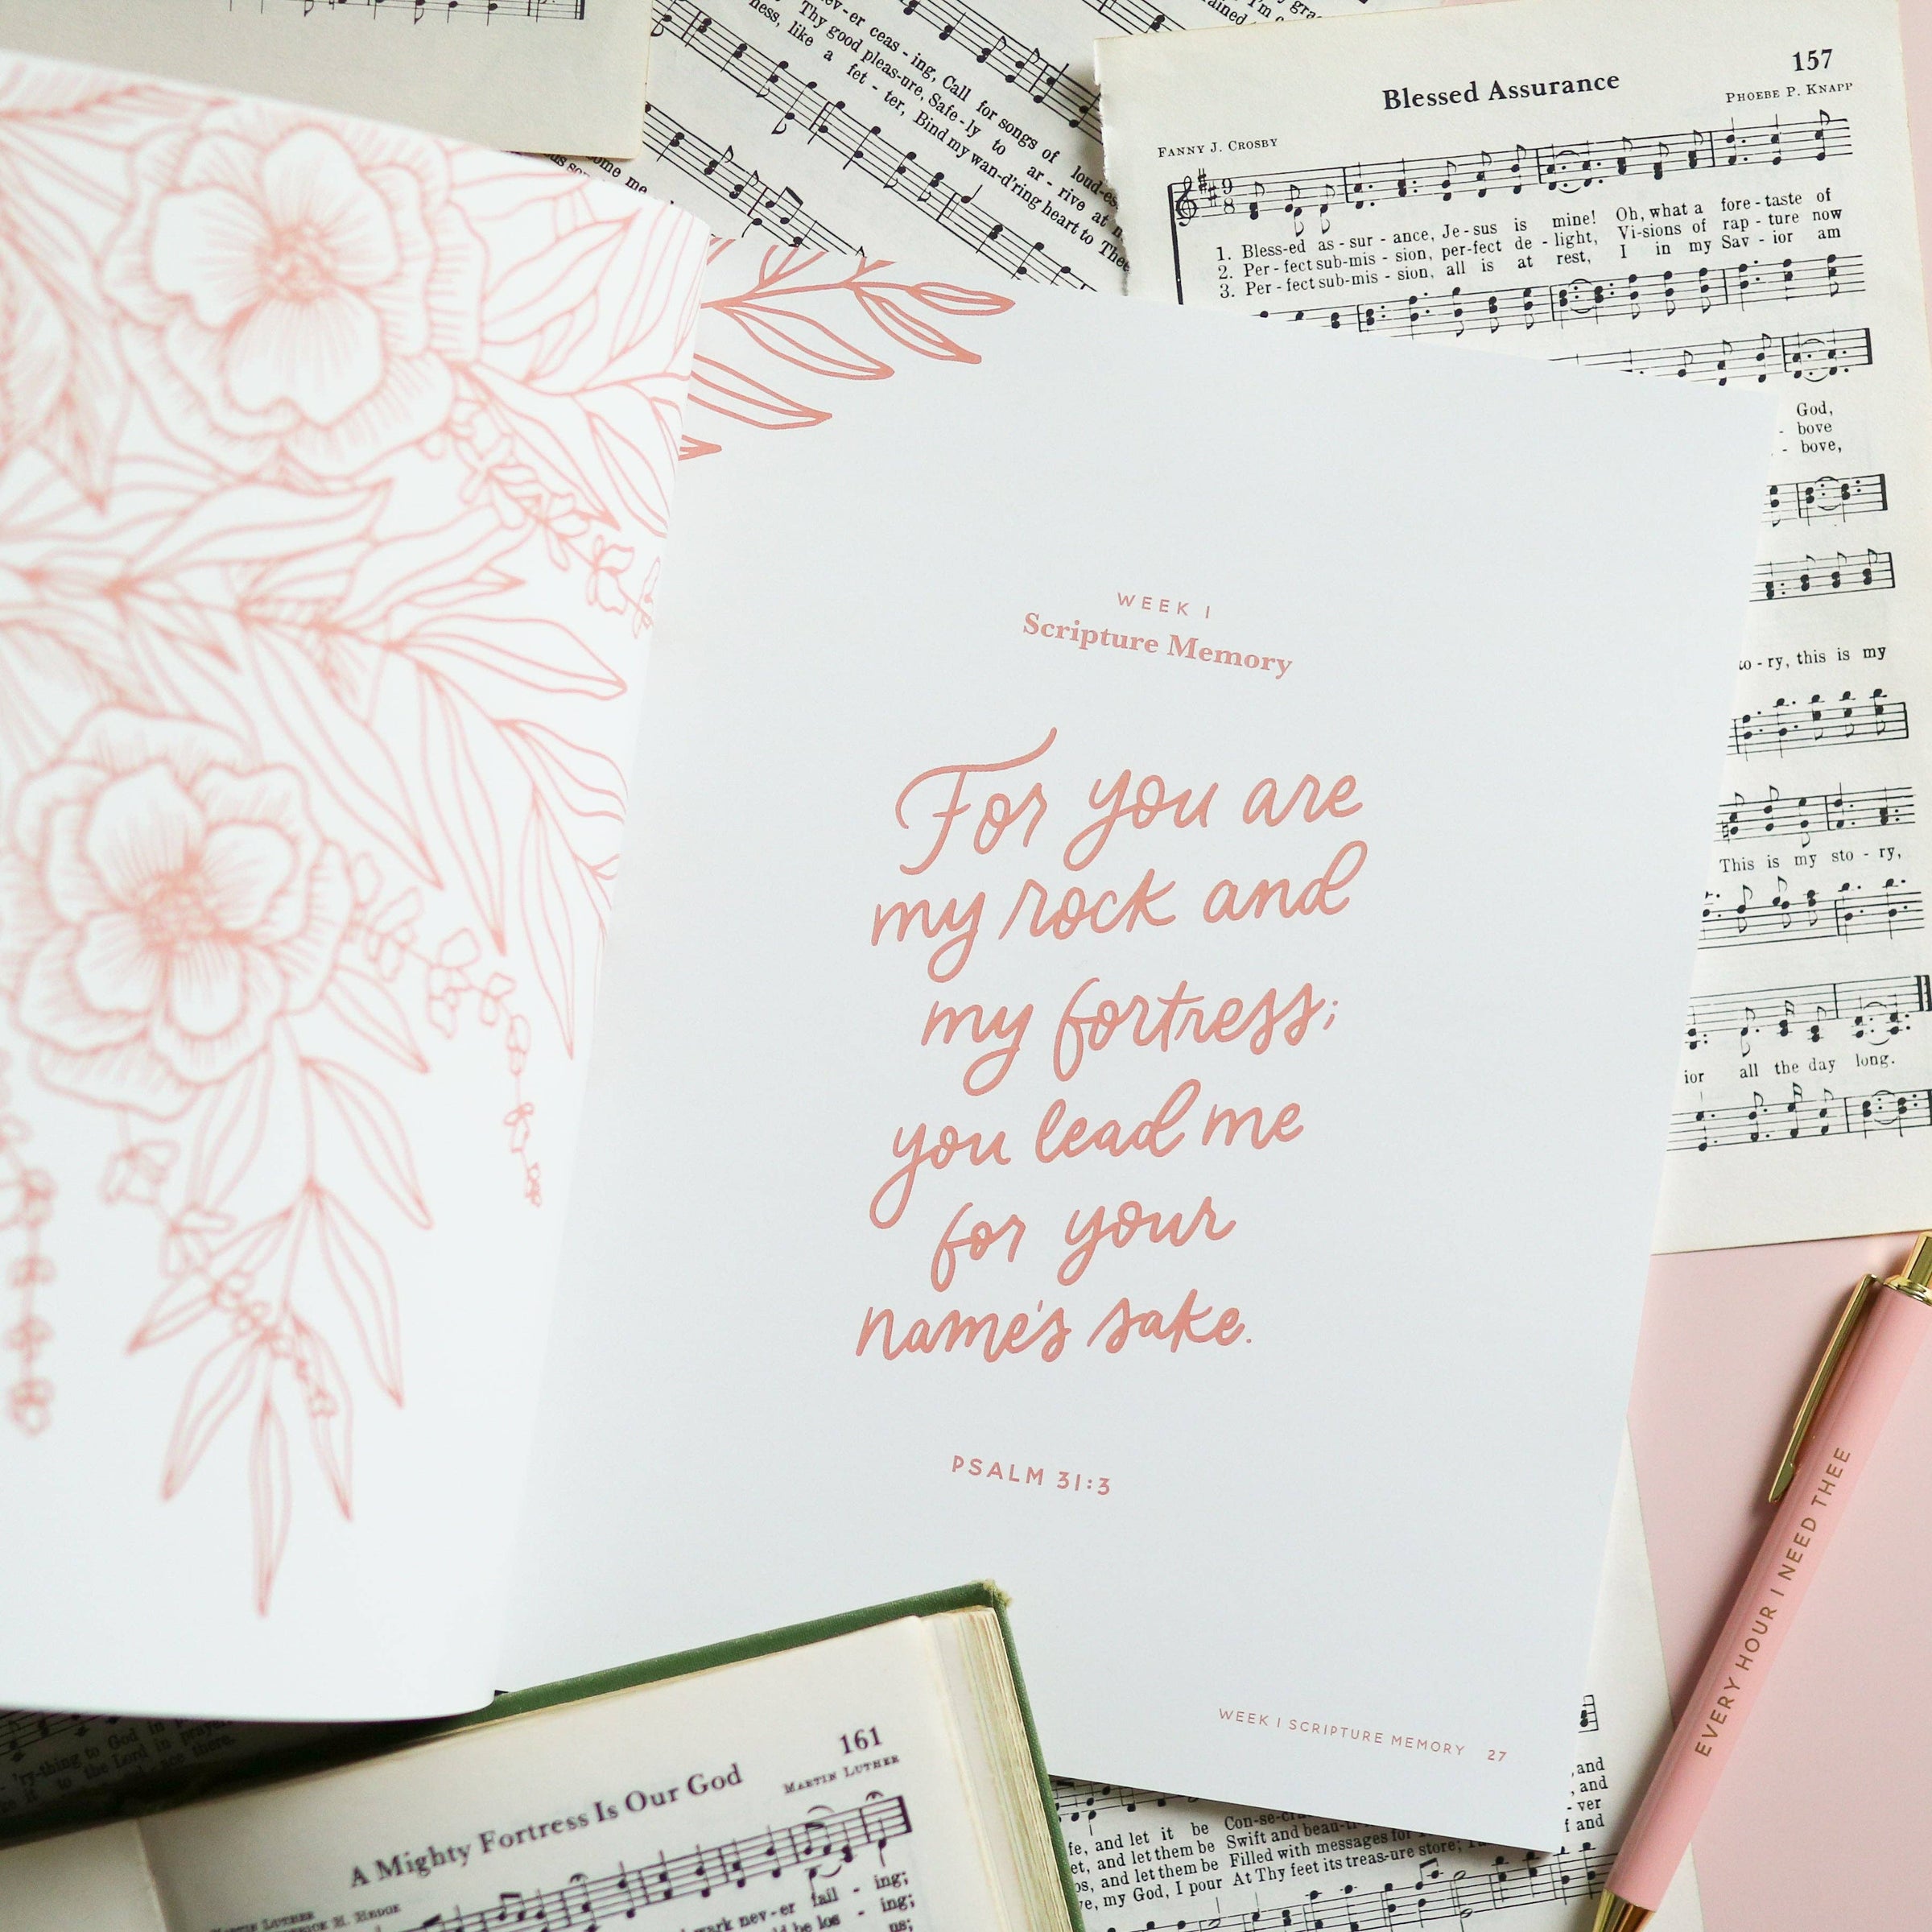 ev-er ceas-ing, Call for songs of loud-es
Thy good pleas-ure, Safe-ly to ar-rive at
ness, like a fet-ter, Bind my wan-d'ring heart to Thee
ome me
157
Blessed Assurance
PHOEBE P. KNAPP
FANNY J. CROSBY
1. Bless-ed as-sur-ance, Je-sus is mine! Oh, what a fore-taste of
2. Per-fect sub-mis-sion, per-fect de-light, Vi-sions of rap-ture now
3. Per-fect sub-mis-sion, all is at rest, I in my Sav-ior am
God,
- bove
- bove,
- ry, this is my
This is my sto-ry,
ior all the day long.
WEEK 1
Scripture Memory
For you are
my rock and
my fortress;
you lead me
for your
name's sake.
PSALM 31:3
WEEK 1 SCRIPTURE MEMORY 27
EVERY HOUR I NEED THEE
'ry-thing to God in
to the Lord in prayer
there.
161
A Mighty Fortress Is Our God
MARTIN LUTHER
nev-er fail - ing;
be los - ing;
us;
fe, and let it be
et, and let them be Swift and beau-ti
os, and let them be Filled with messages
e, my God, I pour At Thy feet its treas-ure store;
, and
, and
- ver
f and